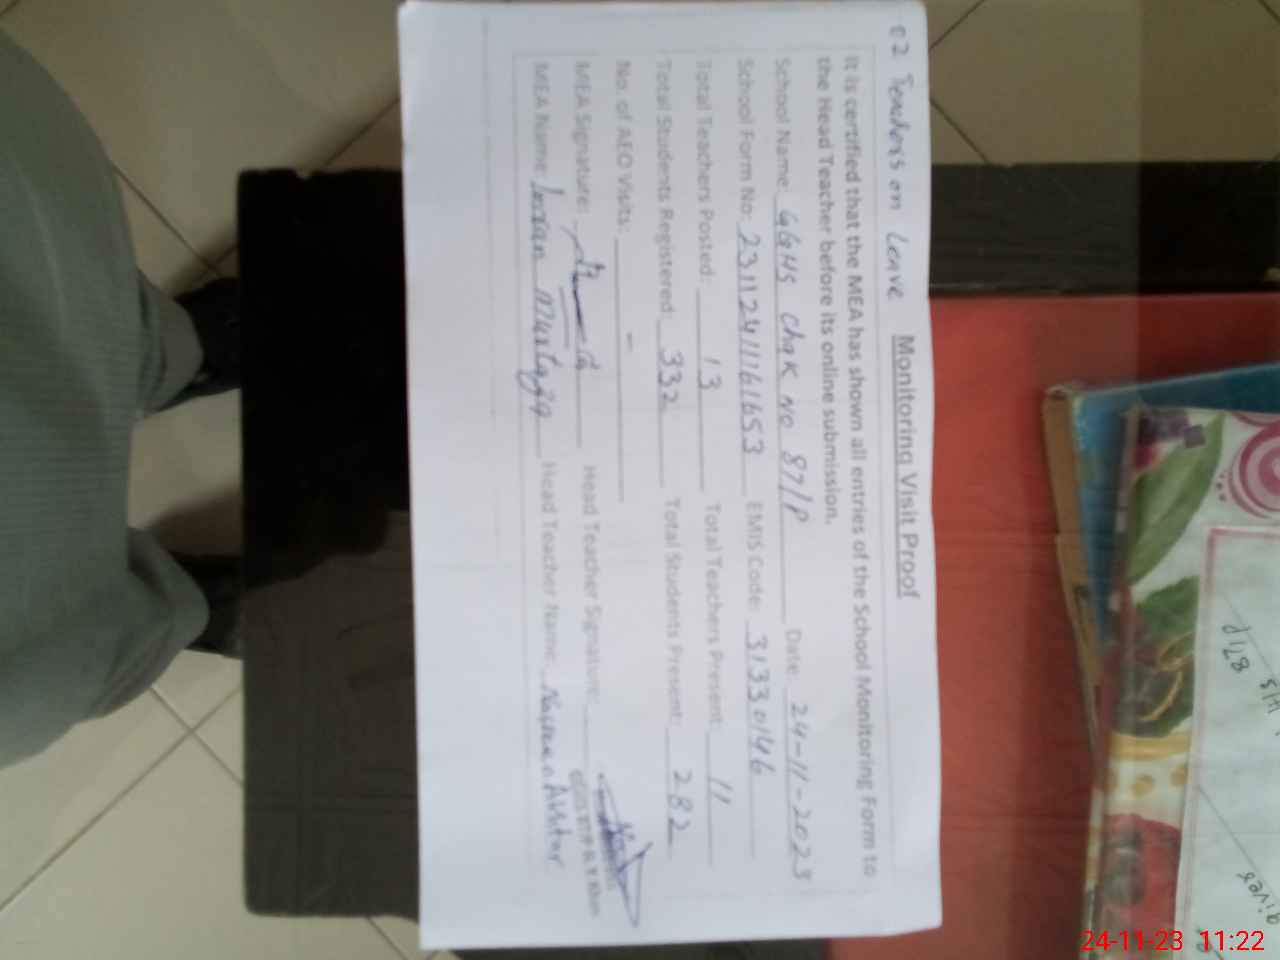 02 Teachers on Leave
Monitoring Visit Proof
It is certified that the MEA has shown all entries of the School Monitoring Form to
the Head Teacher before its online submission.
School Name: GGHS Chak No 87/P Date: 24-11-2023
School Form No: 231124111161653 EMIS Code: 31330146
Total Teachers Posted: 13 Total Teachers Present: 11
Total Students Registered: 332 Total Students Present: 282
No. of AEO Visits: -
MEA Signature: Head Teacher Signature:
MEA Name: Murtaza Head Teacher Name: Akhtar
87/P
24-11-23 11:22